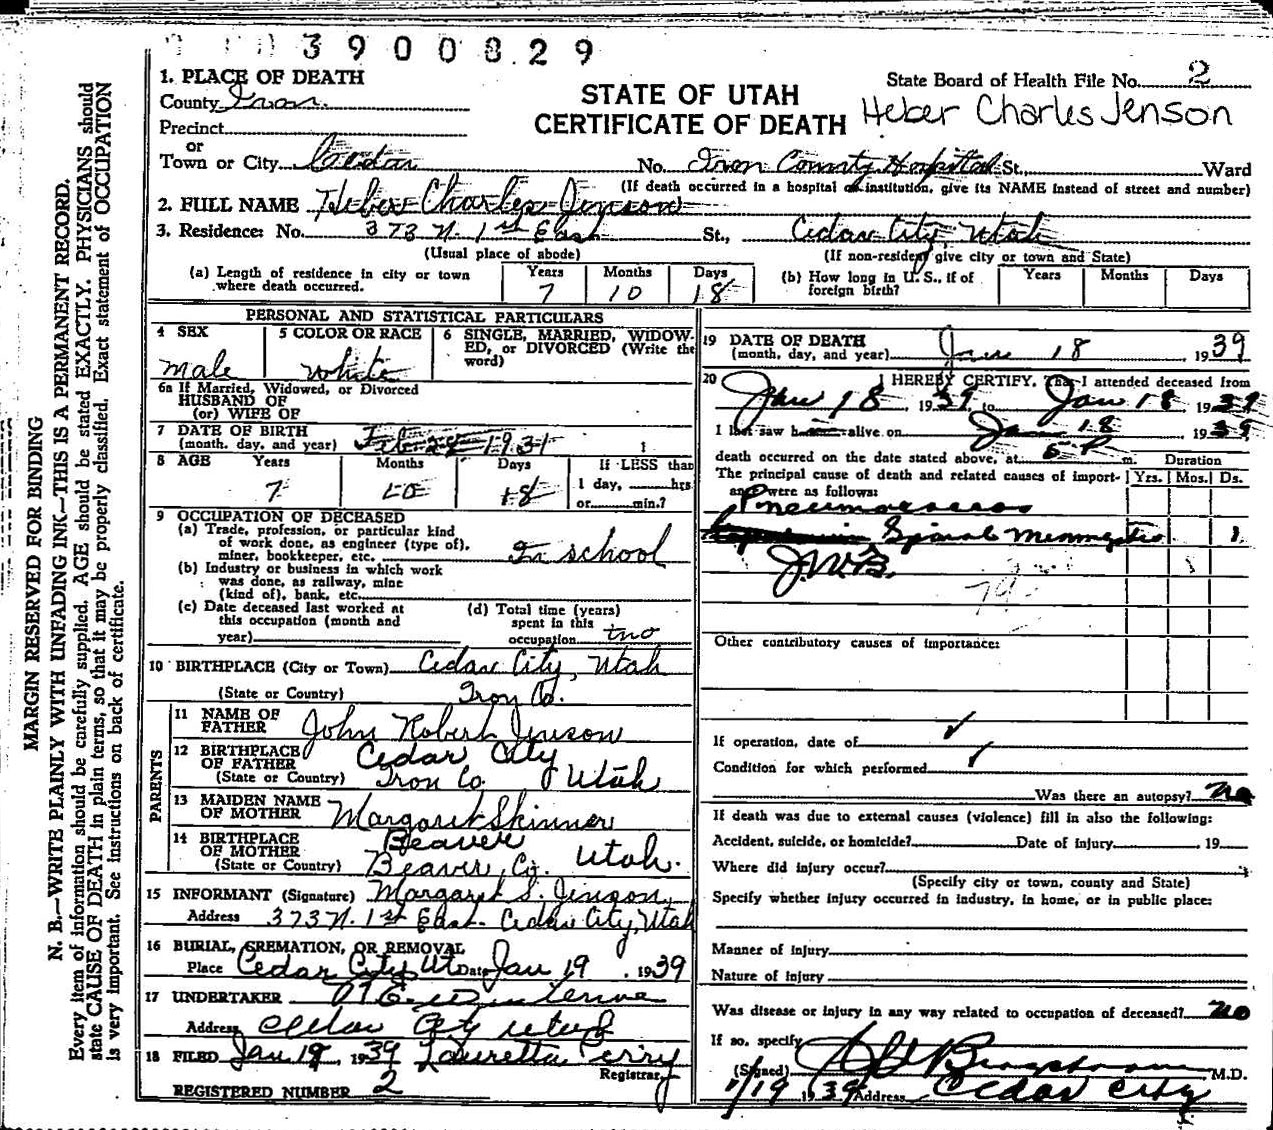 3900829
1. PLACE OF DEATH
State Board of Health File No. 2
County Iron
STATE OF UTAH
CERTIFICATE OF DEATH
Heber Charles Jenson
Precinct
or
Town or City Cedar No. Iron County Hospital St., Ward
(If death occurred in a hospital or institution, give its NAME instead of street and number)
2. FULL NAME Heber Charles Jenson
3. Residence: No. 373 N. 1st East St., Cedar City, Utah
(Usual place of abode) (If non-resident give city or town and State)
(a) Length of residence in city or town where death occurred. Years 7 Months 10 Days 18
(b) How long in U. S., if of foreign birth? Years Months Days
PERSONAL AND STATISTICAL PARTICULARS
4 SEX male
5 COLOR OR RACE white
6 SINGLE, MARRIED, WIDOWED, or DIVORCED (Write the word)
6a If Married, Widowed, or Divorced
HUSBAND OF
(or) WIFE OF
7 DATE OF BIRTH
(month, day, and year) Feb 28 1931
8 AGE Years 7 Months 10 Days 18 If LESS than
1 day, hrs
or min.?
9 OCCUPATION OF DECEASED
(a) Trade, profession, or particular kind
of work done, as engineer (type of),
miner, bookkeeper, etc. In school
(b) Industry or business in which work
was done, as railway, mine
(kind of), bank, etc.
(c) Date deceased last worked at
this occupation (month and
year)
(d) Total time (years)
spent in this
occupation two
10 BIRTHPLACE (City or Town) Cedar City, Utah
(State or Country) Iron Co.
PARENTS
11 NAME OF
FATHER John Robert Jenson
12 BIRTHPLACE
OF FATHER Cedar City
(State or Country) Iron Co. Utah
13 MAIDEN NAME
OF MOTHER Margaret Skinner
14 BIRTHPLACE
OF MOTHER Beaver
(State or Country) Beaver, Co. Utah.
15 INFORMANT (Signature) Margaret S. Jenson
Address 373 N. 1st East. Cedar City, Utah
16 BURIAL, CREMATION, OR REMOVAL
Place Cedar City, Ut Date Jan 19, 1939
17 UNDERTAKER
Address Cedar City Utah
18 FILED Jan 19 1939 Lauretta Perry
Registrar
REGISTERED NUMBER 2
19 DATE OF DEATH
(month, day, and year) Jan 18 1939
20 I HEREBY CERTIFY, That I attended deceased from
Jan 18, 1939 to Jan 18 1939
I last saw h alive on Jan 18 1939
death occurred on the date stated above, at 5 P m. Duration
The principal cause of death and related causes of importance were as follows: Yrs. Mos. Ds.
Pneumococcos
Spinal Meningitis 1
J.W.B.
79
Other contributory causes of importance:
If operation, date of ✓
Condition for which performed ✓
Was there an autopsy? No
If death was due to external causes (violence) fill in also the following:
Accident, suicide, or homicide? Date of injury 19
Where did injury occur?
(Specify city or town, county and State)
Specify whether injury occurred in industry, in home, or in public place:
Manner of injury
Nature of injury
Was disease or injury in any way related to occupation of deceased? no
If so, specify
(Signed) M.D.
1/19 1939 Address Cedar City
MARGIN RESERVED FOR BINDING
N. B.—WRITE PLAINLY WITH UNFADING INK—THIS IS A PERMANENT RECORD.
Every item of information should be carefully supplied. AGE should be stated EXACTLY. PHYSICIANS should
state CAUSE OF DEATH in plain terms, so that it may be properly classified. Exact statement of OCCUPATION
is very important. See instructions on back of certificate.